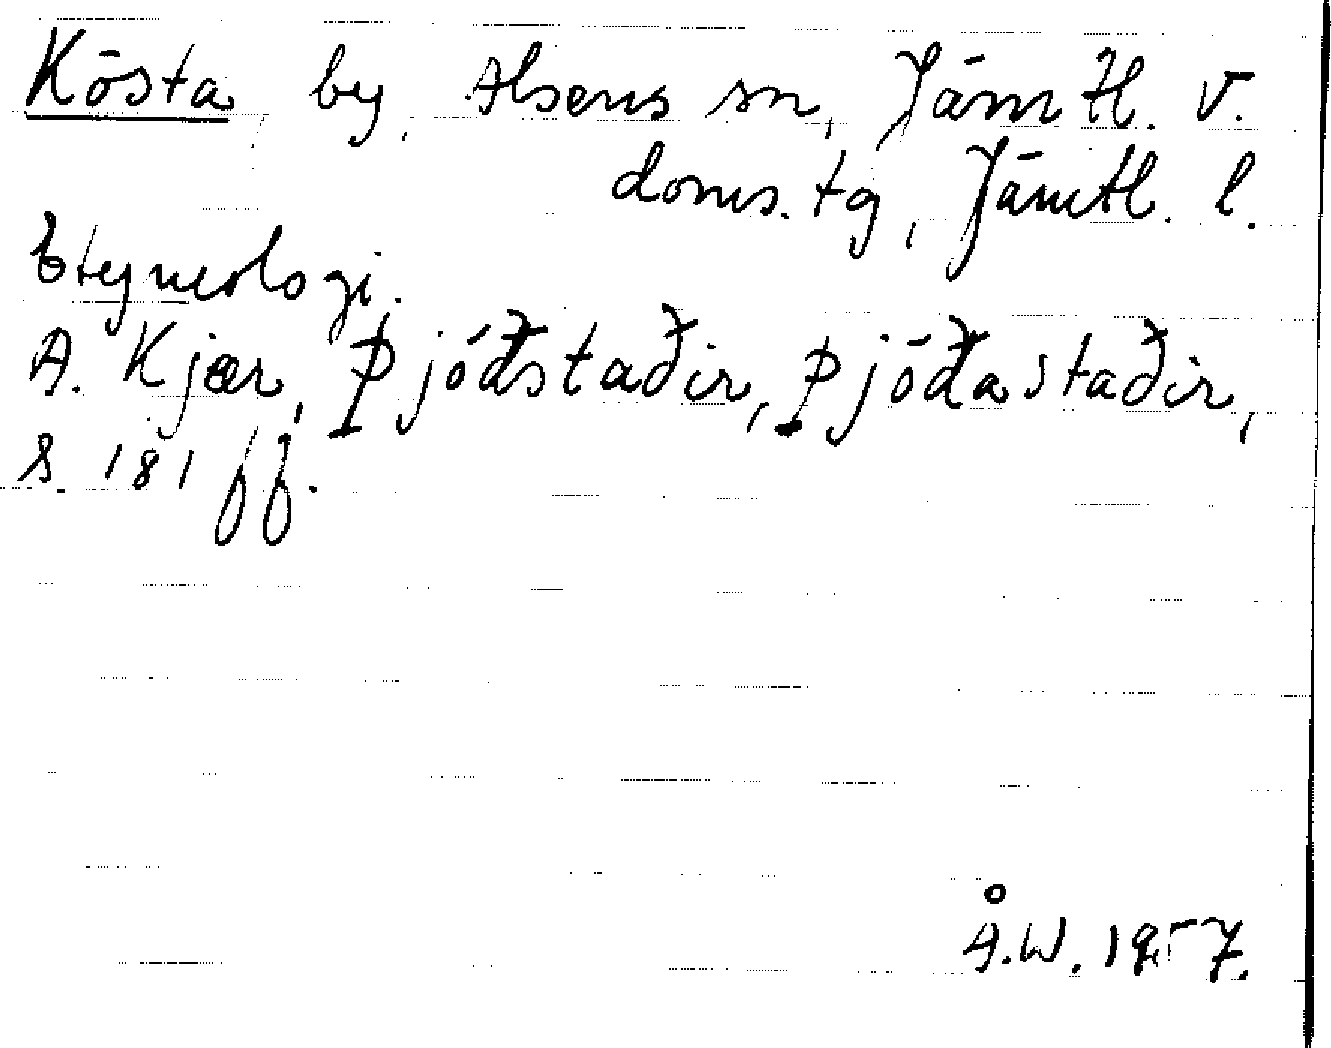 Kösta by, Alsens sn, Jämtl. v.
doms. tg, Jämtl. l.
Etymologi.
A. Kjær, Þjóðstaðir, Þjóðastaðir,
s. 181 ff.
Å.W. 1957.